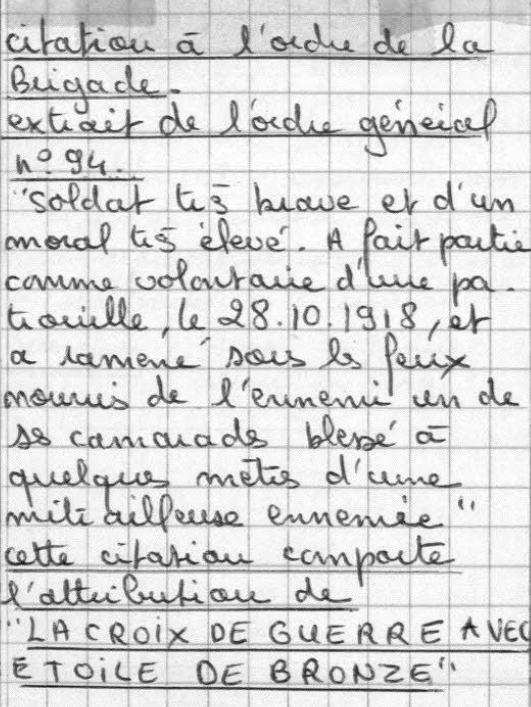 citation à l'ordre de la
Brigade.
extrait de l'ordre général
nº 94.
"soldat très brave et d'un
moral très élevé. A fait partie
comme volontaire d'une pa.
trouille, le 28.10.1918, et
a ramené sous les feux
nourris de l'ennemi un de
ses camarades blessé à
quelques mètres d'une
mitrailleuse ennemie"
cette citation comporte
l'attribution de
"LA CROIX DE GUERRE AVEC
ÉTOILE DE BRONZE"